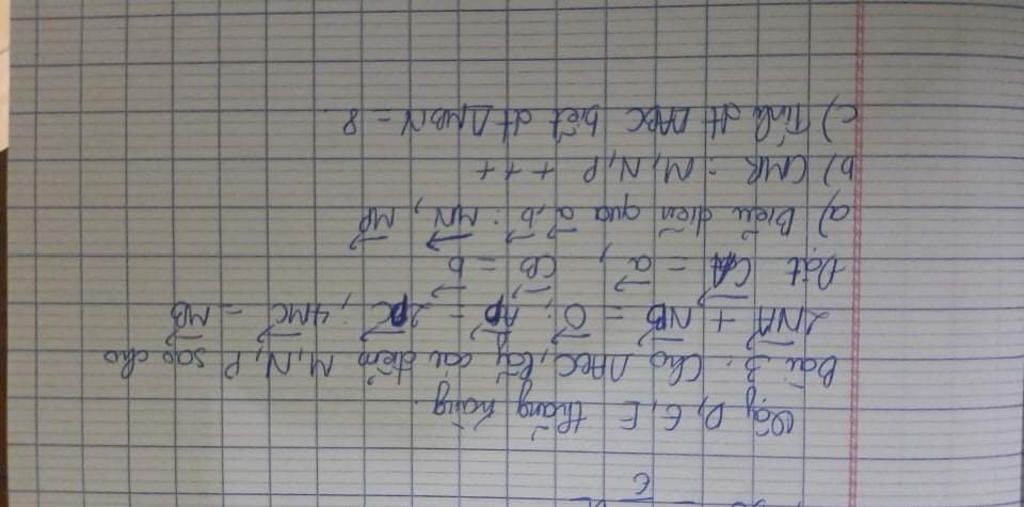 Vậy D, G, E thẳng hàng.
Bài 3: Cho ΔABC, lấy các điểm M, N, P sao cho
2NA + NB = O; AP = 2PC; 4MC = MB
Đặt CA = a, CB = b
a) Biểu diễn qua a, b: MN, MP
b) CMR: M, N, P + + +
c) Tính dt ΔABC biết dt ΔMBN = 8.